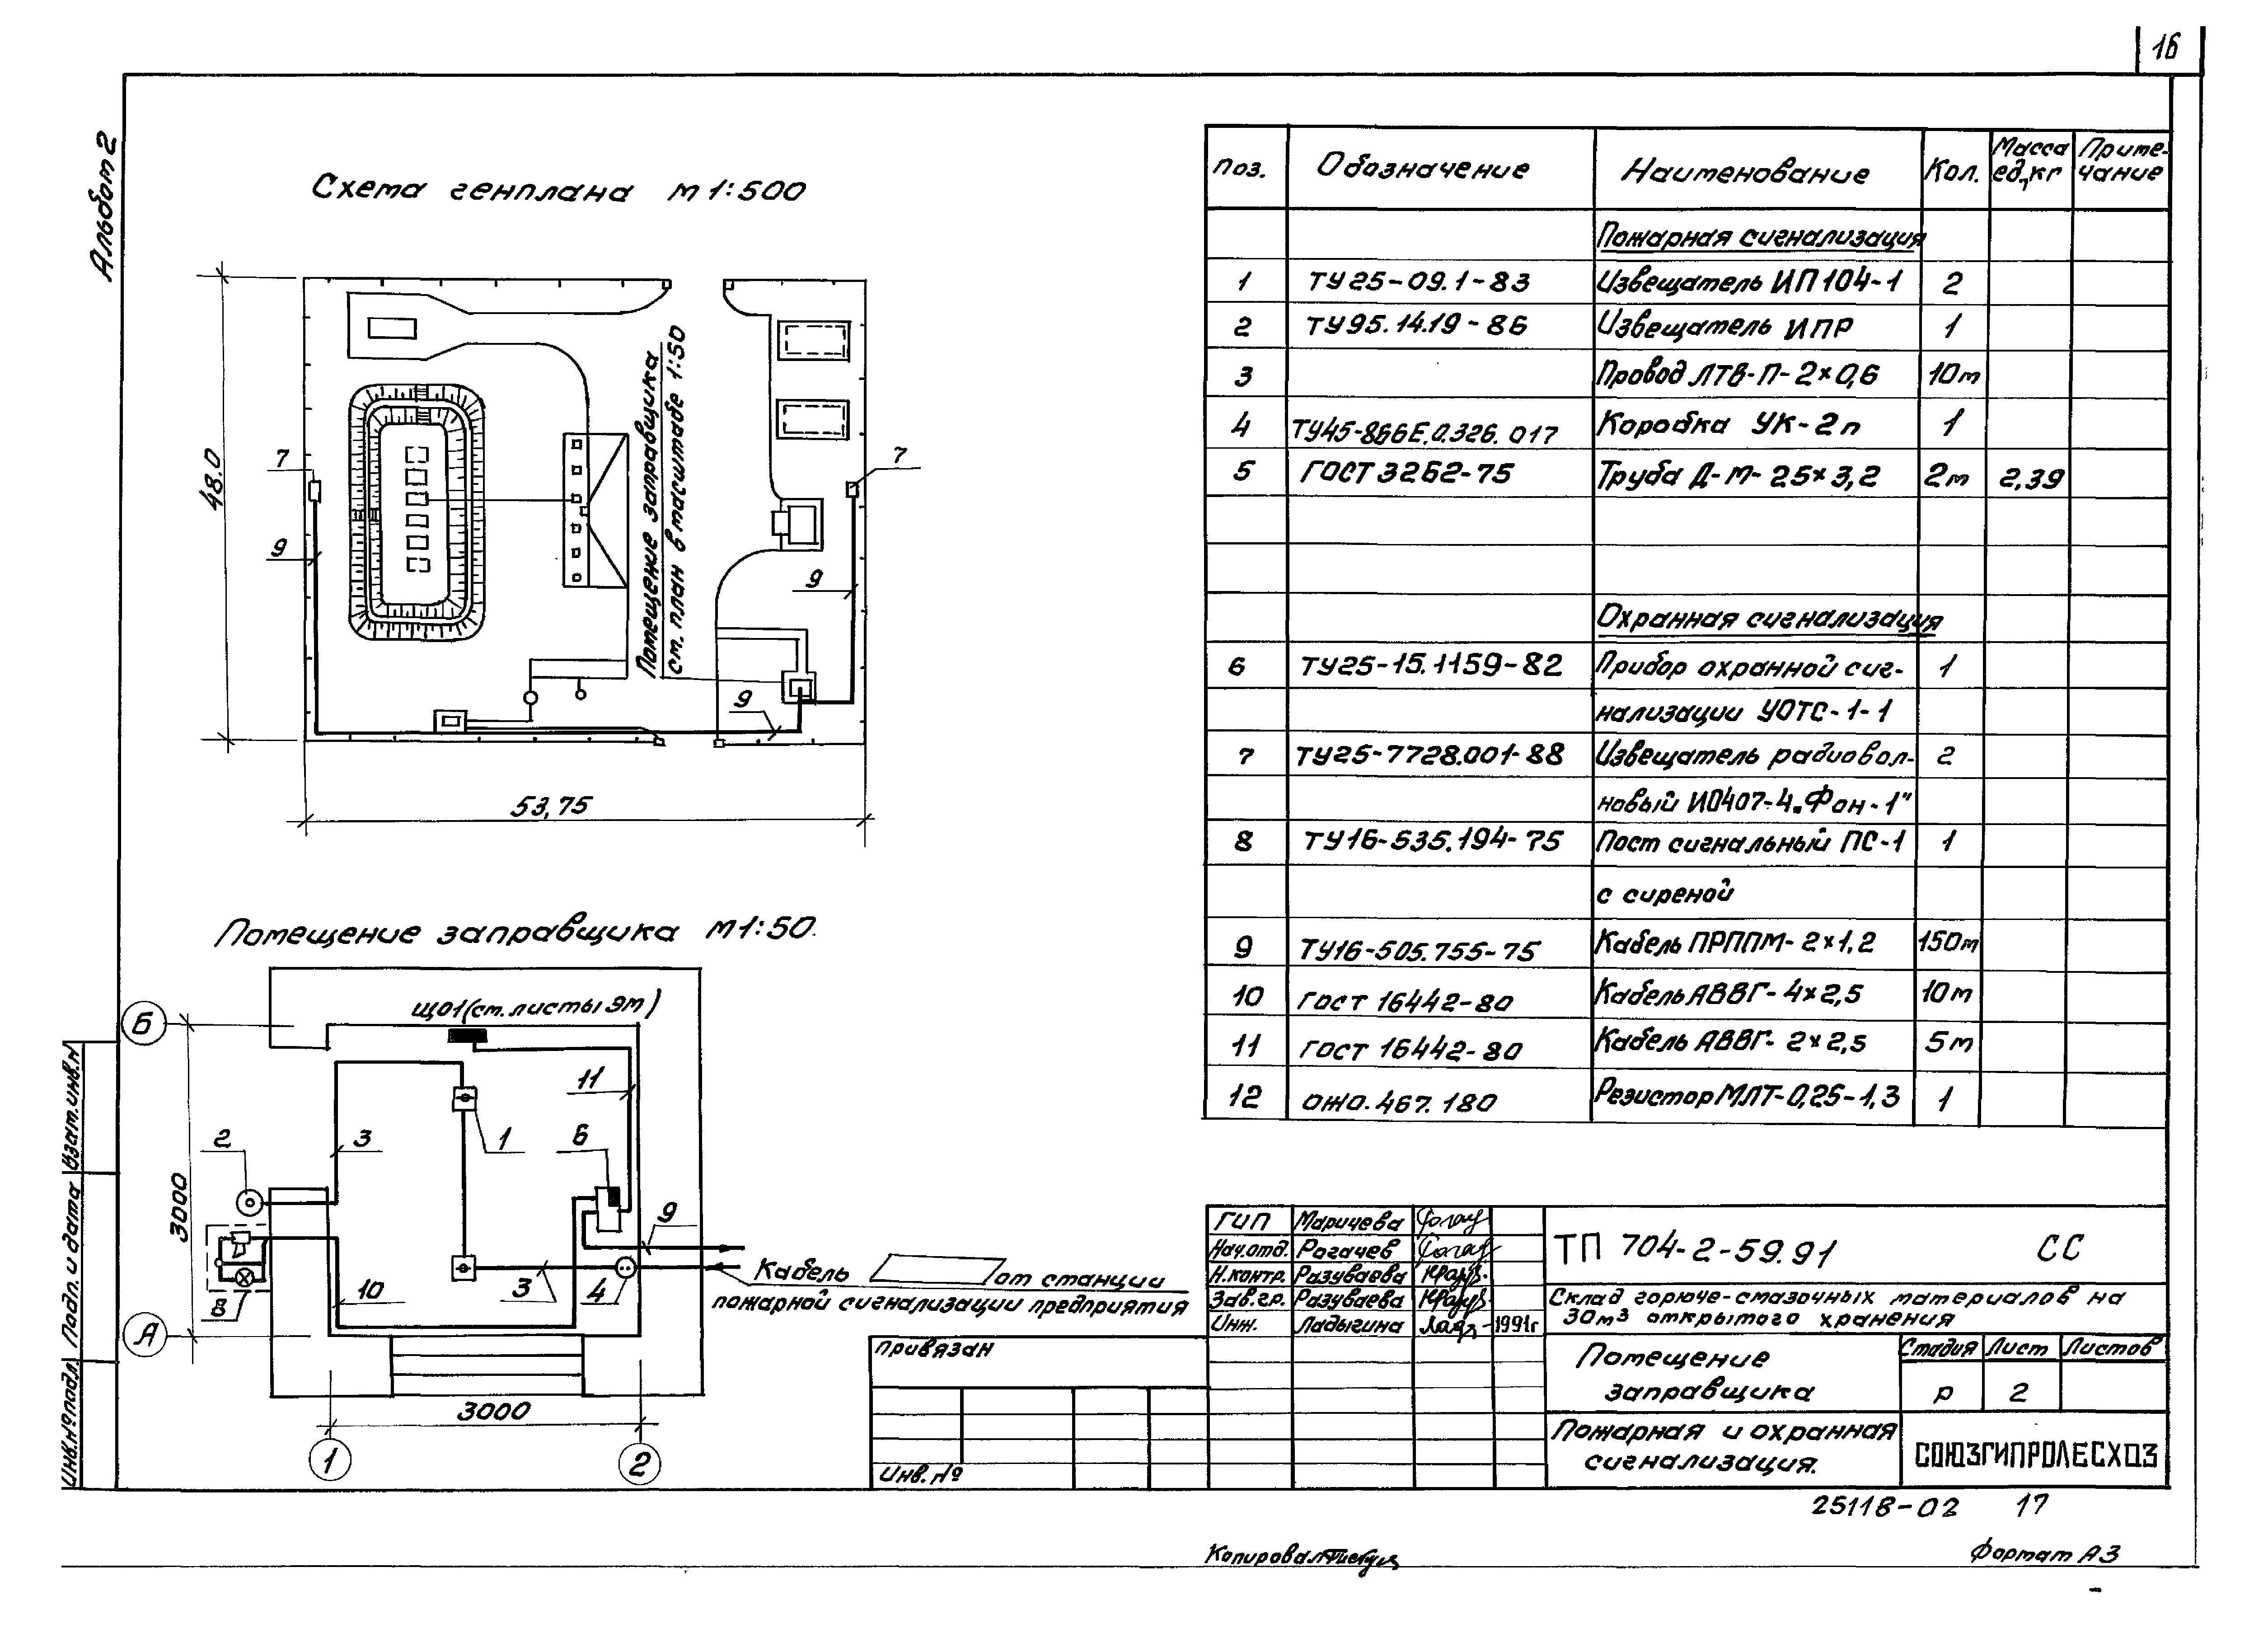 16
Альбом 2
Схема генплана М 1:500
48.0
53,75
7
9
7
9
9
Помещение заправщика
см. план в масштабе 1:50
Помещение заправщика М 1:50.
ЩО1 (см. листы ЭМ)
Б
А
3000
3000
1
2
2
3
1
11
6
9
8
10
3
4
Кабель от станции
пожарной сигнализации предприятия
Поз. Обозначение Наименование Кол. Масса ед, кг Приме-чание
Пожарная сигнализация
1 ТУ25-09.1-83 Извещатель ИП104-1 2
2 ТУ95.14.19-86 Извещатель ИПР 1
3 Провод ЛТВ-П-2×0,6 10м
4 ТУ45-866Е.0.326.017 Коробка УК-2п 1
5 ГОСТ 3262-75 Труба Д-М-25×3,2 2м 2,39
Охранная сигнализация
6 ТУ25-15.1159-82 Прибор охранной сиг- 1
нализации УОТС-1-1
7 ТУ25-7728.001-88 Извещатель радиовол- 2
новый ИО407-4 „Фон-1"
8 ТУ16-535.194-75 Пост сигнальный ПС-1 1
с сиреной
9 ТУ16-505.755-75 Кабель ПРППМ-2×1,2 150м
10 ГОСТ 16442-80 Кабель АВВГ-4×2,5 10м
11 ГОСТ 16442-80 Кабель АВВГ-2×2,5 5м
12 ОЖО.467.180 Резистор МЛТ-0,25-1,3 1
ГИП Маричева
Нач.отд. Рогачев
Н.контр. Разуваева
Зав.гр. Разуваева
Инж. Ладыгина 1991г
ТП 704-2-59.91 СС
Склад горюче-смазочных материалов на
30м³ открытого хранения
Помещение
заправщика
Стадия Лист Листов
Р 2
Пожарная и охранная
сигнализация.
СОЮЗГИПРОЛЕСХОЗ
Привязан
Инв. №
Взам.инв.№
Подп. и дата
Инв.№подл.
25118-02 17
Копировал
Формат А3